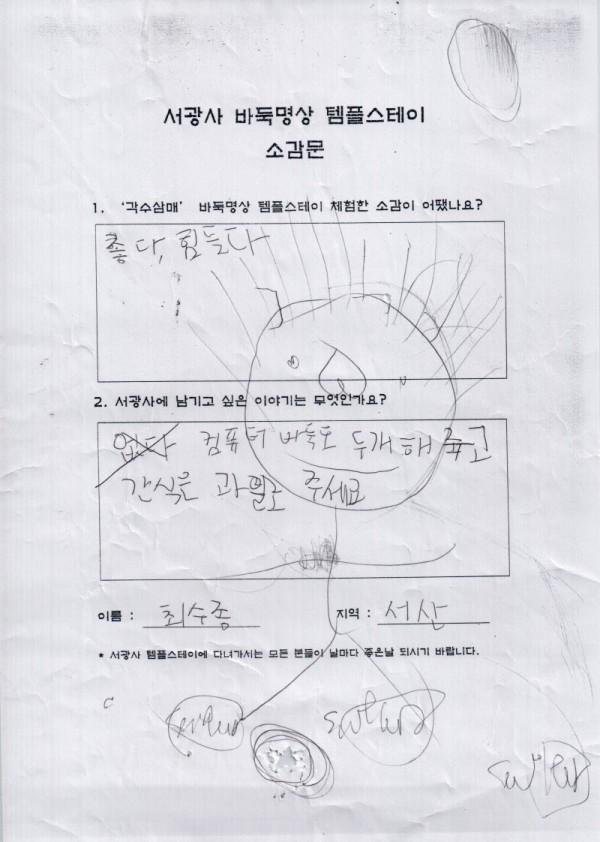 서광사 바둑명상 템플스테이
소감문
1. ‘각수삼매’ 바둑명상 템플스테이 체험한 소감이 어땠나요?
좋다, 힘들다
2. 서광사에 남기고 싶은 이야기는 무엇인가요?
없다 컴퓨터 바둑도 두개 해 주고
간식을 과일로 주세요
이름 : 최수종 지역 : 서산
* 서광사 템플스테이에 다녀가시는 모든 분들이 날마다 좋은날 되시기 바랍니다.